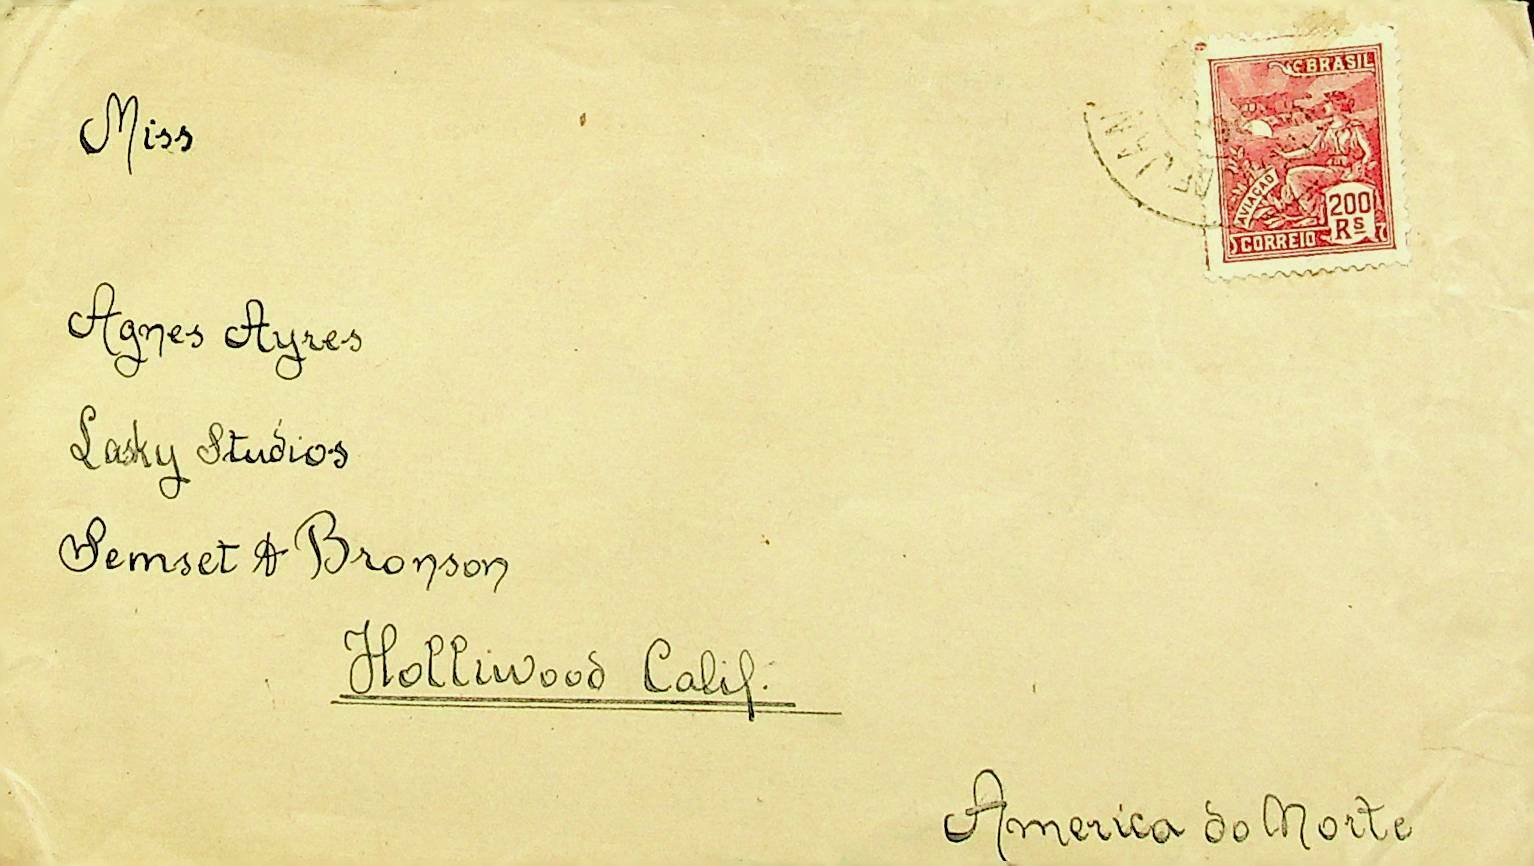 Miss
BRASIL
AVIAÇAO
200
Rs
CORREIO
Agnes Ayres
Lasky Studios
Semset & Bronson
Holliwood Calif.
America do Norte